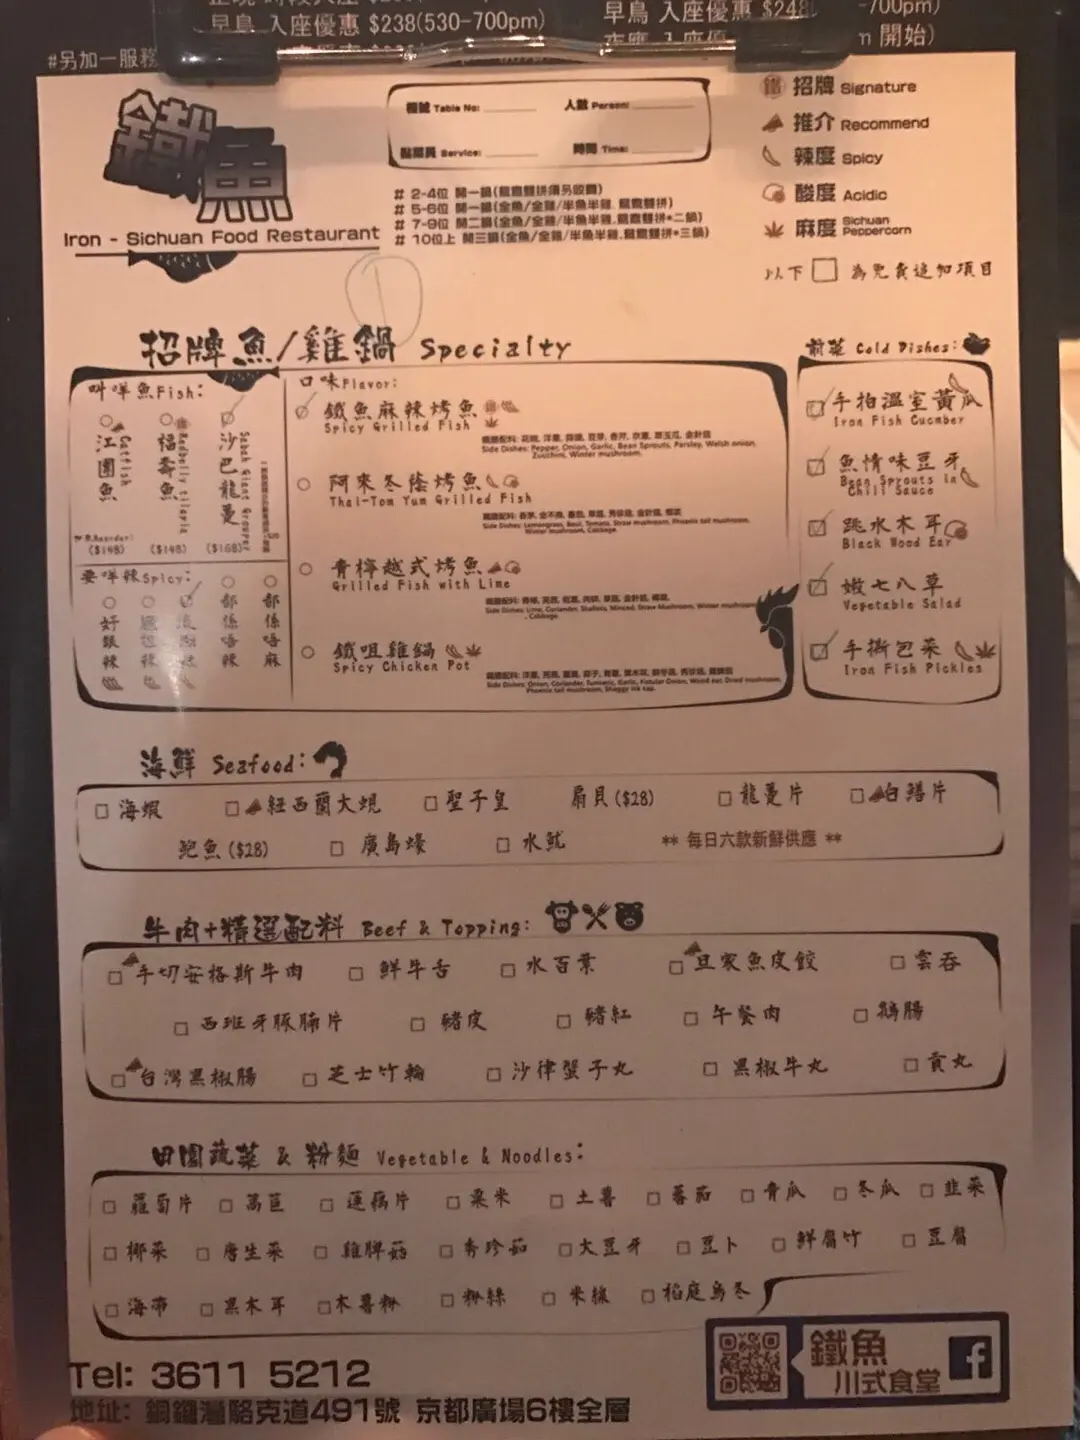 早鳥 入座優惠 $238(530-700pm)
早鳥 入座優惠 $248
-700pm)
開始)
#另加一服務
鐵魚
Iron - Sichuan Food Restaurant
檯號 Table No:
人數 Person:
服務員 Service:
時間 Time:
# 2-4位 開一鍋(鴛鴦雙拼須另收費)
# 5-6位 開一鍋(全魚/全雞/半魚半雞.鴛鴦雙拼)
# 7-9位 開二鍋(全魚/全雞/半魚半雞.鴛鴦雙拼*二鍋)
# 10位上 開三鍋(全魚/全雞/半魚半雞.鴛鴦雙拼*三鍋)
招牌 Signature
推介 Recommend
辣度 Spicy
酸度 Acidic
麻度 Sichuan Peppercorn
以下 □ 為免費追加項目
1
招牌魚/雞鍋 Specialty
叫咩魚Fish:
江團魚 Catfish
福壽魚 Redbelly tilapia
沙巴龍躉 Sabah Giant Grouper
Reorder:
($148)
($148)
($168)
要咩辣Spicy:
好銀辣
都係唔辣
都係唔麻
口味Flavor:
鐵魚麻辣烤魚
Spicy Grilled Fish
Side Dishes: Pepper, Onion, Garlic, Bean Sprouts, Parsley, Welsh onion,
Zucchini, Winter mushroom.
阿來冬蔭烤魚
Thai-Tom Yum Grilled Fish
Side Dishes: Lemongrass, Basil, Tomato, Straw mushroom, Phoenix tail mushroom,
Winter mushroom, Cabbage.
青檸越式烤魚
Grilled Fish with Lime
Side Dishes: Lime, Coriander, Shallots, Minced, Straw Mushroom, Winter mushroom
, Cabbage.
鐵咀雞鍋
Spicy Chicken Pot
Side Dishes: Onion, Coriander, Turmeric, Garlic, Fistular Onion, Wood ear, Dried mushroom,
Phoenix tail mushroom, Shaggy ink cap.
前菜 Cold Dishes:
手拍溫室黃瓜
Iron Fish Cucmber
魚情味豆牙
Bean Sprouts in
Chili Sauce
跳水木耳
Black Wood Ear
嫩七八草
Vegetable Salad
手撕包菜
Iron Fish Pickles
海鮮 Seafood:
海蝦
紐西蘭大蜆
聖子皇
扇貝($28)
龍躉片
白鱔片
鮑魚($28)
廣島蠔
水魷
** 每日六款新鮮供應 **
牛肉+精選配料 Beef & Topping:
手切安格斯牛肉
鮮牛舌
水百葉
旦家魚皮餃
雲吞
西班牙豚腩片
豬皮
豬紅
午餐肉
鵝腸
台灣黑椒腸
芝士竹輪
沙律蟹子丸
黑椒牛丸
貢丸
田園蔬菜 & 粉麵 Vegetable & Noodles:
蘿蔔片
萵苣
蓮藕片
粟米
土薯
蕃茄
青瓜
冬瓜
韭菜
椰菜
唐生菜
雞脾菇
秀珍茹
大豆牙
豆卜
鮮腐竹
豆腐
海帶
黑木耳
木薯粉
粉絲
米線
稻庭烏冬
Tel: 3611 5212
地址: 銅鑼灣駱克道491號 京都廣場6樓全層
鐵魚
川式食堂
f